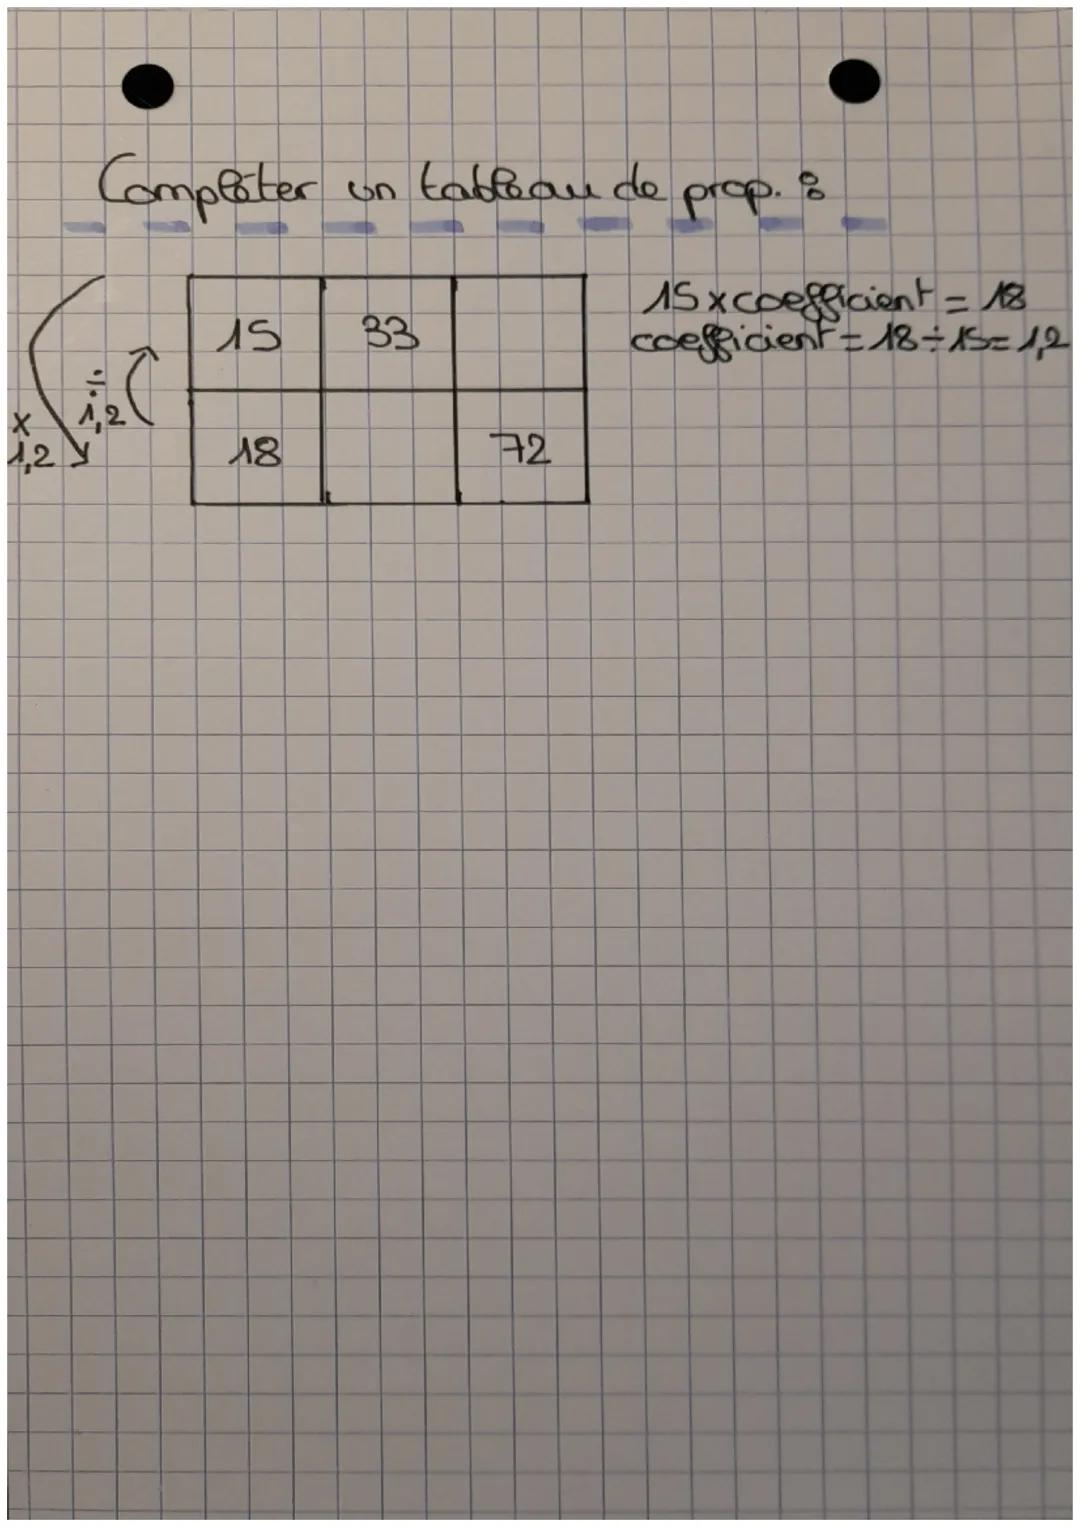 Compléter un tableau de prop. :
15 x coefficient = 18
coefficient = 18 ÷ 15 = 1,2
15 33
÷
1,2
x
1,2
18 72